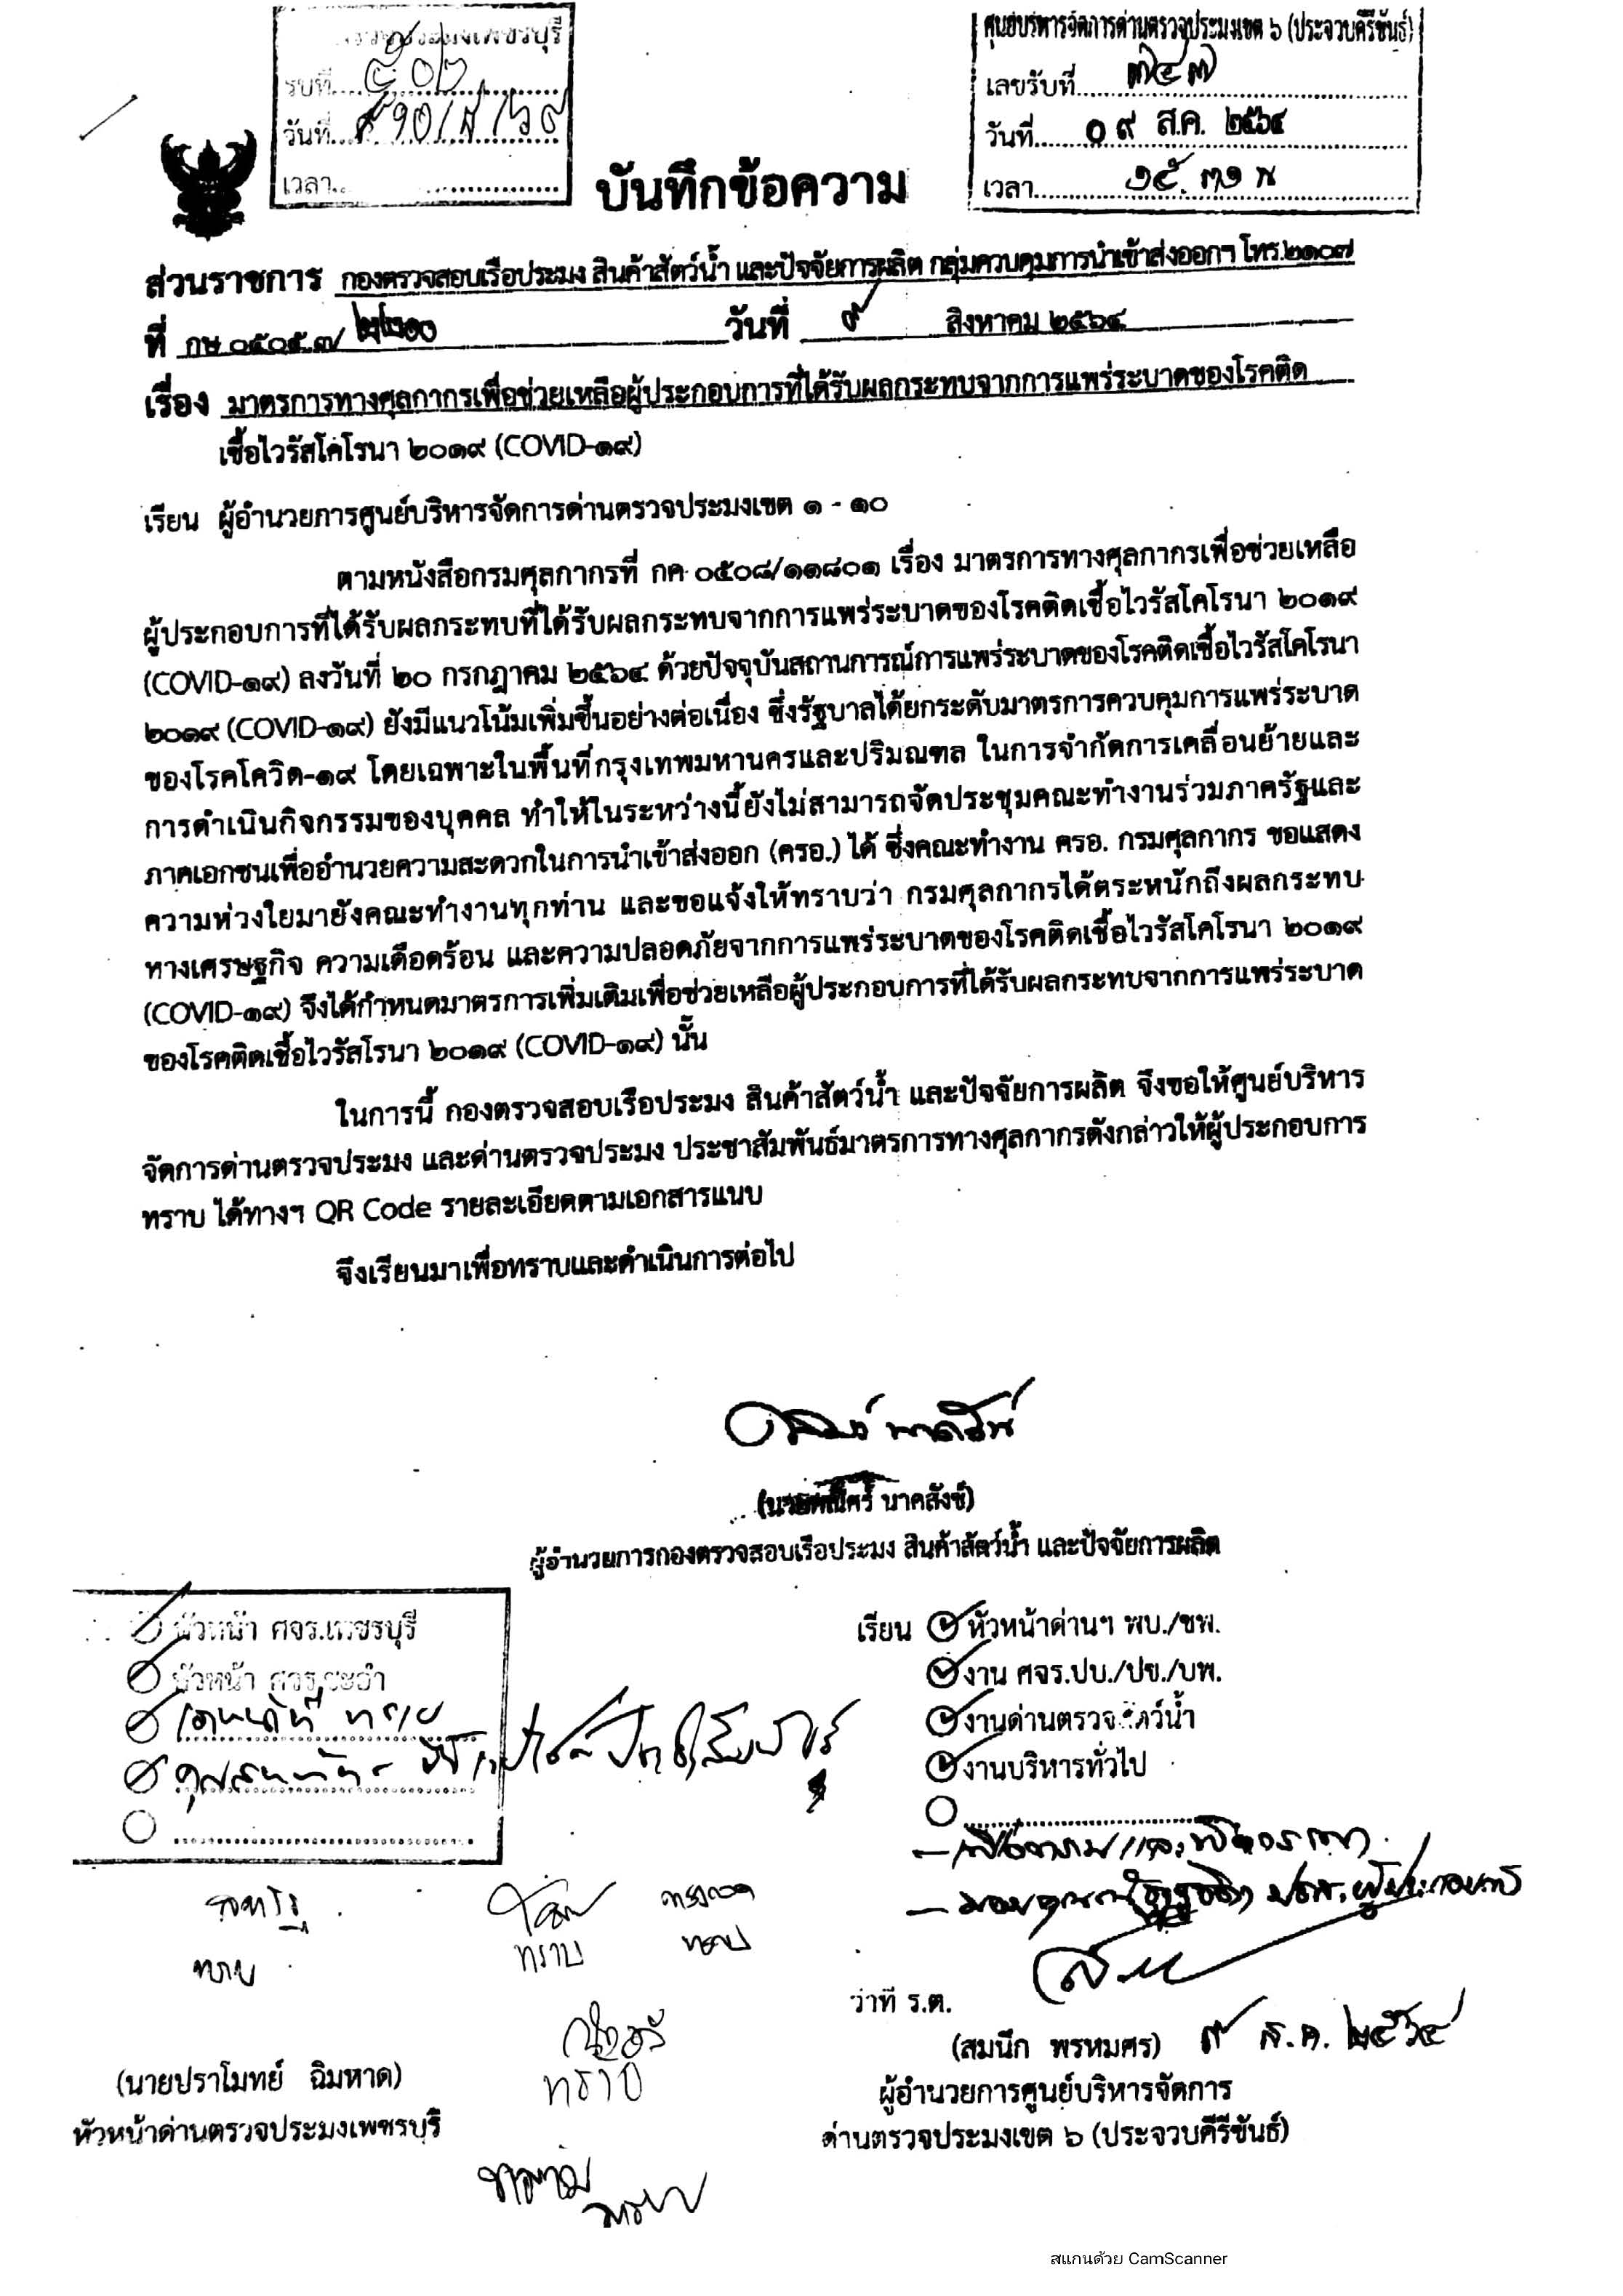 ด่านตรวจประมงเพชรบุรี
รับที่ ๕๐๒
วันที่
เวลา
ศูนย์บริหารจัดการด่านตรวจประมงเขต ๖ (ประจวบคีรีขันธ์)
เลขรับที่ ๓๔๗
วันที่ ๐๙ ส.ค. ๒๕๖๔
เวลา ๑๕.๓๑ น
บันทึกข้อความ
ส่วนราชการ กองตรวจสอบเรือประมง สินค้าสัตว์น้ำ และปัจจัยการผลิต กลุ่มควบคุมการนำเข้าส่งออกฯ โทร.๒๑๐๗
ที่ กษ ๐๕๐๕.๗/ วันที่ ๙ สิงหาคม ๒๕๖๔
เรื่อง มาตรการทางศุลกากรเพื่อช่วยเหลือผู้ประกอบการที่ได้รับผลกระทบจากการแพร่ระบาดของโรคติด
เชื้อไวรัสโคโรนา ๒๐๑๙ (COVID-๑๙)
เรียน ผู้อำนวยการศูนย์บริหารจัดการด่านตรวจประมงเขต ๑ - ๑๐
ตามหนังสือกรมศุลกากรที่ กค ๐๕๐๘/๑๑๘๐๑ เรื่อง มาตรการทางศุลกากรเพื่อช่วยเหลือ
ผู้ประกอบการที่ได้รับผลกระทบที่ได้รับผลกระทบจากการแพร่ระบาดของโรคติดเชื้อไวรัสโคโรนา ๒๐๑๙
(COVID-๑๙) ลงวันที่ ๒๐ กรกฎาคม ๒๕๖๔ ด้วยปัจจุบันสถานการณ์การแพร่ระบาดของโรคติดเชื้อไวรัสโคโรนา
๒๐๑๙ (COVID-๑๙) ยังมีแนวโน้มเพิ่มขึ้นอย่างต่อเนื่อง ซึ่งรัฐบาลได้ยกระดับมาตรการควบคุมการแพร่ระบาด
ของโรคโควิด-๑๙ โดยเฉพาะในพื้นที่กรุงเทพมหานครและปริมณฑล ในการจำกัดการเคลื่อนย้ายและ
การดำเนินกิจกรรมของบุคคล ทำให้ในระหว่างนี้ยังไม่สามารถจัดประชุมคณะทำงานร่วมภาครัฐและ
ภาคเอกชนเพื่ออำนวยความสะดวกในการนำเข้าส่งออก (ครอ.) ได้ ซึ่งคณะทำงาน ครอ. กรมศุลกากร ขอแสดง
ความห่วงใยมายังคณะทำงานทุกท่าน และขอแจ้งให้ทราบว่า กรมศุลกากรได้ตระหนักถึงผลกระทบ
ทางเศรษฐกิจ ความเดือดร้อน และความปลอดภัยจากการแพร่ระบาดของโรคติดเชื้อไวรัสโคโรนา ๒๐๑๙
(COVID-๑๙) จึงได้กำหนดมาตรการเพิ่มเติมเพื่อช่วยเหลือผู้ประกอบการที่ได้รับผลกระทบจากการแพร่ระบาด
ของโรคติดเชื้อไวรัสโรนา ๒๐๑๙ (COVID-๑๙) นั้น
ในการนี้ กองตรวจสอบเรือประมง สินค้าสัตว์น้ำ และปัจจัยการผลิต จึงขอให้ศูนย์บริหาร
จัดการด่านตรวจประมง และด่านตรวจประมง ประชาสัมพันธ์มาตรการทางศุลกากรดังกล่าวให้ผู้ประกอบการ
ทราบ ได้ทางฯ QR Code รายละเอียดตามเอกสารแนบ
จึงเรียนมาเพื่อทราบและดำเนินการต่อไป
นาคสังข์)
ผู้อำนวยการกองตรวจสอบเรือประมง สินค้าสัตว์น้ำ และปัจจัยการผลิต
หัวหน้า ศจร.เพชรบุรี
หัวหน้า ศจร.ชะอำ
เรียน หัวหน้าด่านฯ พบ./ชพ.
งาน ศจร.ปบ./ปข./บพ.
งานด่านตรวจสัตว์น้ำ
งานบริหารทั่วไป
- เพื่อทราบและพิจารณา
ทราบ
ทราบ
ทราบ
ว่าที่ ร.ต.
(สมนึก พรหมศร) ๙ ส.ค. ๒๕๖๔
ผู้อำนวยการศูนย์บริหารจัดการ
ด่านตรวจประมงเขต ๖ (ประจวบคีรีขันธ์)
(นายปราโมทย์ ฉิมหาด)
หัวหน้าด่านตรวจประมงเพชรบุรี
ทราบ
ทราบ
สแกนด้วย CamScanner